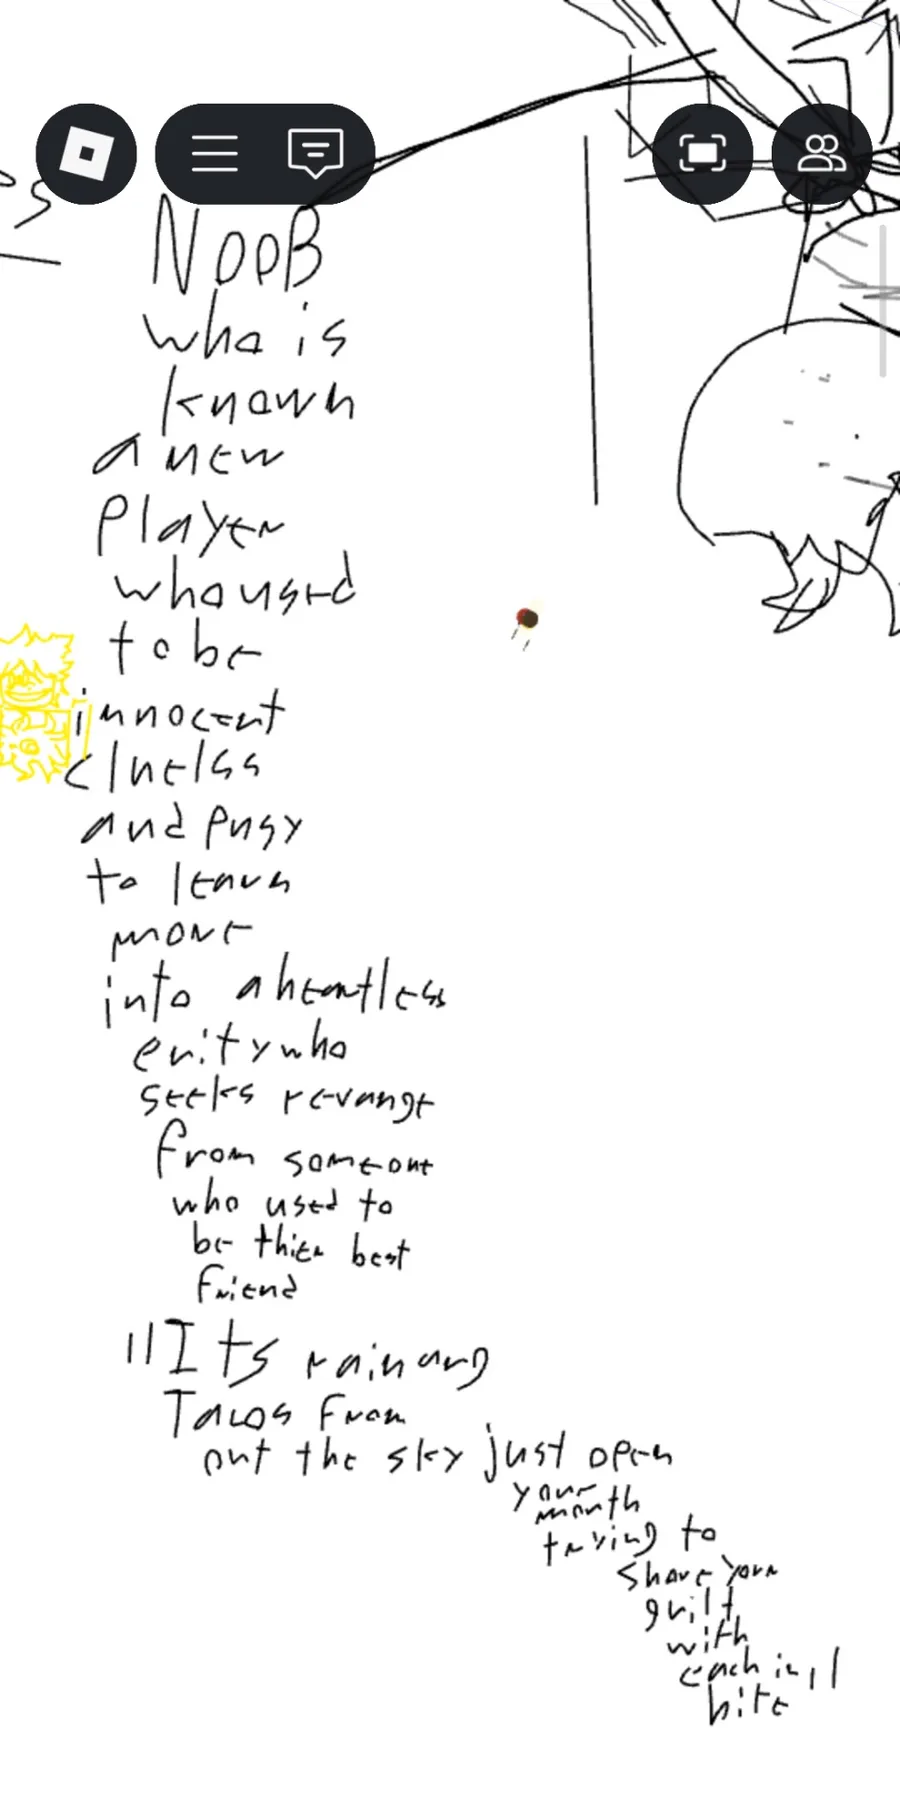 s
NooB
who is
known
a new
Player
who used
to be
innocent
cluelss
and Pusy
to learn
more
into a heartless
enity who
seeks revange
from someone
who used to
be thier best
friend
"Its raining
Tacos from
out the sky just open
your
mouth
trying to
share your
guilt
with
each
bite